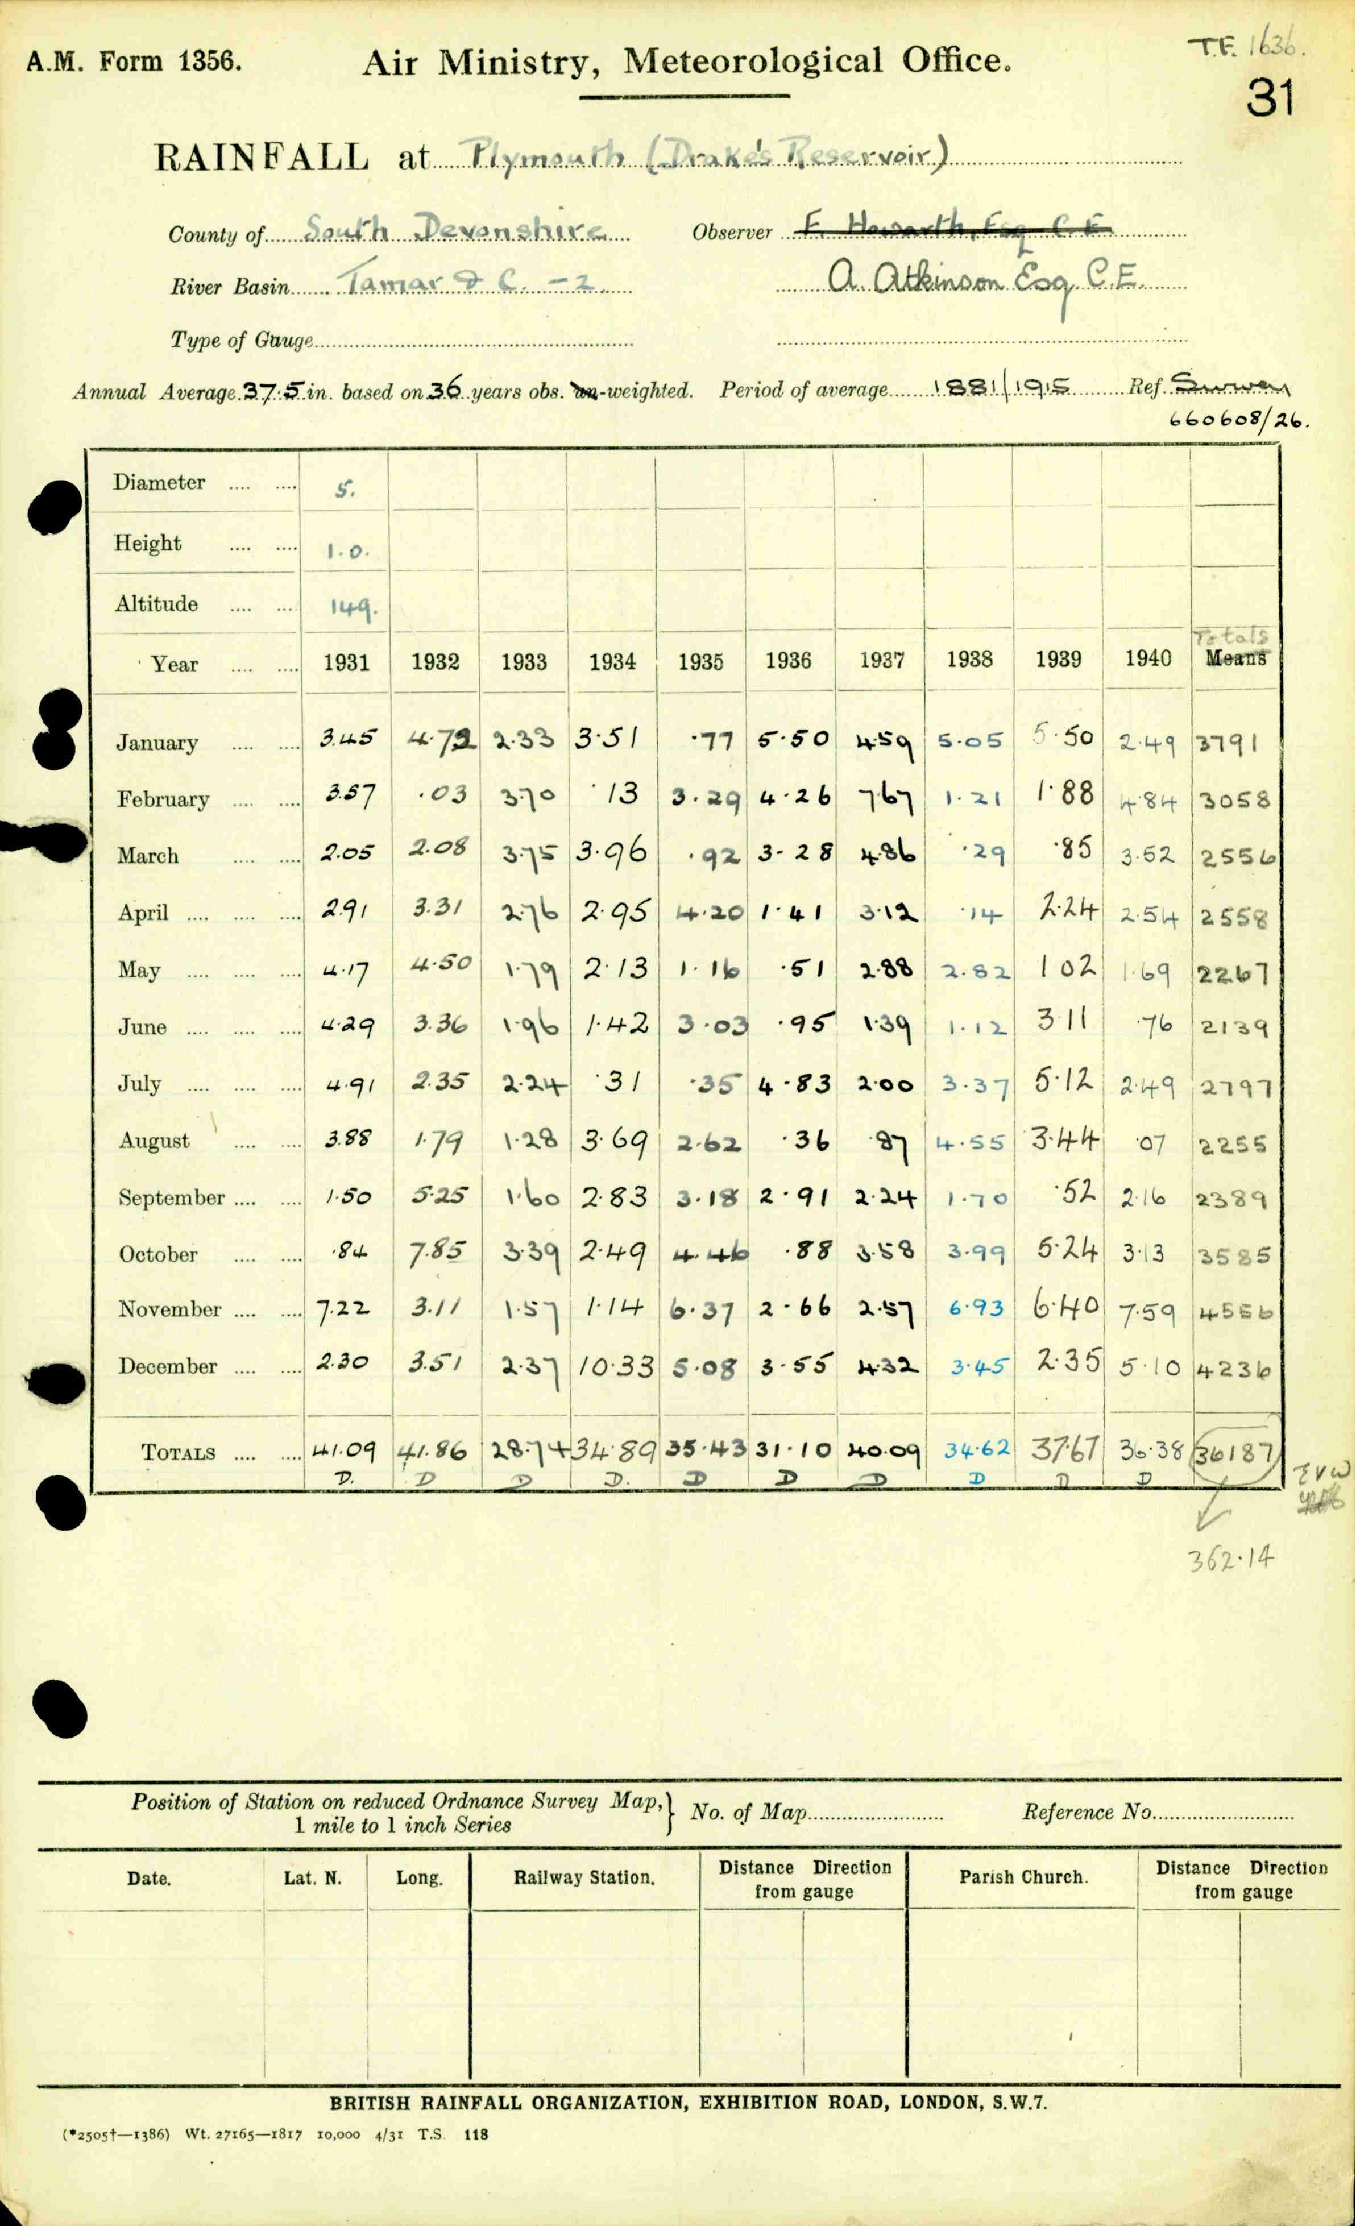 T.F. 1636.
A.M. Form 1356. Air Ministry, Meteorological Office.
31
RAINFALL at Plymouth (Drake's Reservoir)
County of South Devonshire Observer F. Howarth, Esq C.E.
River Basin Tamar & C. -2. A. Atkinson Esq. C.E.
Type of Gauge
Annual Average 37.5 in. based on 36 years obs. un-weighted. Period of average 1881/1915 Ref. Survey
660608/26.
Diameter .... .... 5.
Height .... .... 1.0.
Altitude .... .... 149.
Totals
Year .... .... 1931 1932 1933 1934 1935 1936 1937 1938 1939 1940 Means
January .... .... 3.45 4.72 2.33 3.51 .77 5.50 4.59 5.05 5.50 2.49 3791
February .... .... 3.57 .03 3.70 .13 3.29 4.26 7.67 1.21 1.88 4.84 3058
March .... .... 2.05 2.08 3.75 3.96 .92 3.28 4.86 .29 .85 3.52 2556
April .... .... .... 2.91 3.31 2.76 2.95 4.20 1.41 3.12 .14 2.24 2.54 2558
May .... .... .... 4.17 4.50 1.79 2.13 1.16 .51 2.88 2.82 1 02 1.69 2267
June .... .... .... 4.29 3.36 1.96 1.42 3.03 .95 1.39 1.12 3 11 .76 2139
July .... .... .... 4.91 2.35 2.24 .31 .35 4.83 2.00 3.37 5.12 2.49 2797
August .... .... 3.88 1.79 1.28 3.69 2.62 .36 .87 4.55 3.44 .07 2255
September .... .... 1.50 5.25 1.60 2.83 3.18 2.91 2.24 1.70 .52 2.16 2389
October .... .... .84 7.85 3.39 2.49 4.46 .88 3.58 3.99 5.24 3.13 3585
November .... .... 7.22 3.11 1.57 1.14 6.37 2.66 2.57 6.93 6.40 7.59 4556
December .... .... 2.30 3.51 2.37 10.33 5.08 3.55 4.32 3.45 2.35 5.10 4236
TOTALS .... .... 41.09 41.86 28.74 34.89 35.43 31.10 40.09 34.62 37.67 36.38 36187
D. D D D. D D D D D D
362.14
Position of Station on reduced Ordnance Survey Map, } No. of Map Reference No.
1 mile to 1 inch Series
Date. Lat. N. Long. Railway Station. Distance Direction from gauge Parish Church. Distance Direction from gauge
BRITISH RAINFALL ORGANIZATION, EXHIBITION ROAD, LONDON, S.W.7.
(*2505†—1386) Wt. 27165—1817 10,000 4/31 T.S. 118